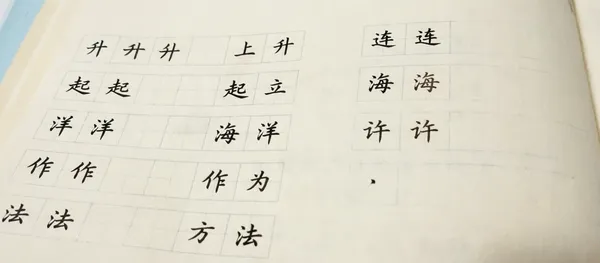 升升升 上升
起起 起立
洋洋 海洋
作作 作为
法法 方法
连连
海海
许许